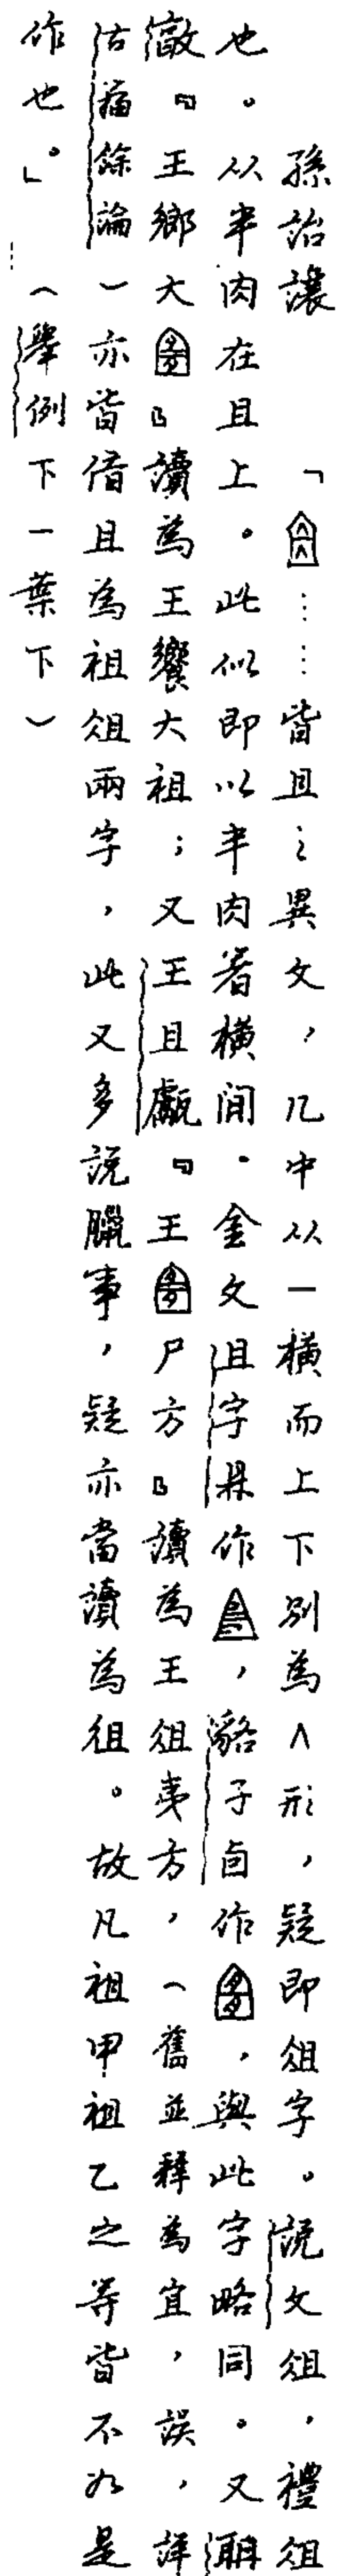 孫詒讓　「𠁁……皆且之異文,几中从一横而上下別為∧形,疑即俎字。說文俎,禮俎
也。从半肉在且上。此似即以半肉着横间。金文且字𣆪作,貉子卣作,與此字略同。又𦖞
𣪘『王鄉大』讀為王饗大祖;又王且甗『王尸方』讀為王俎夷方,(舊並釋為宜,誤,詳
古籀餘論)亦皆借且為祖俎兩字,此又多說臘事,疑亦當讀為徂。故凡祖甲祖乙之等皆不如是
作也。」…(舉例下一葉下)